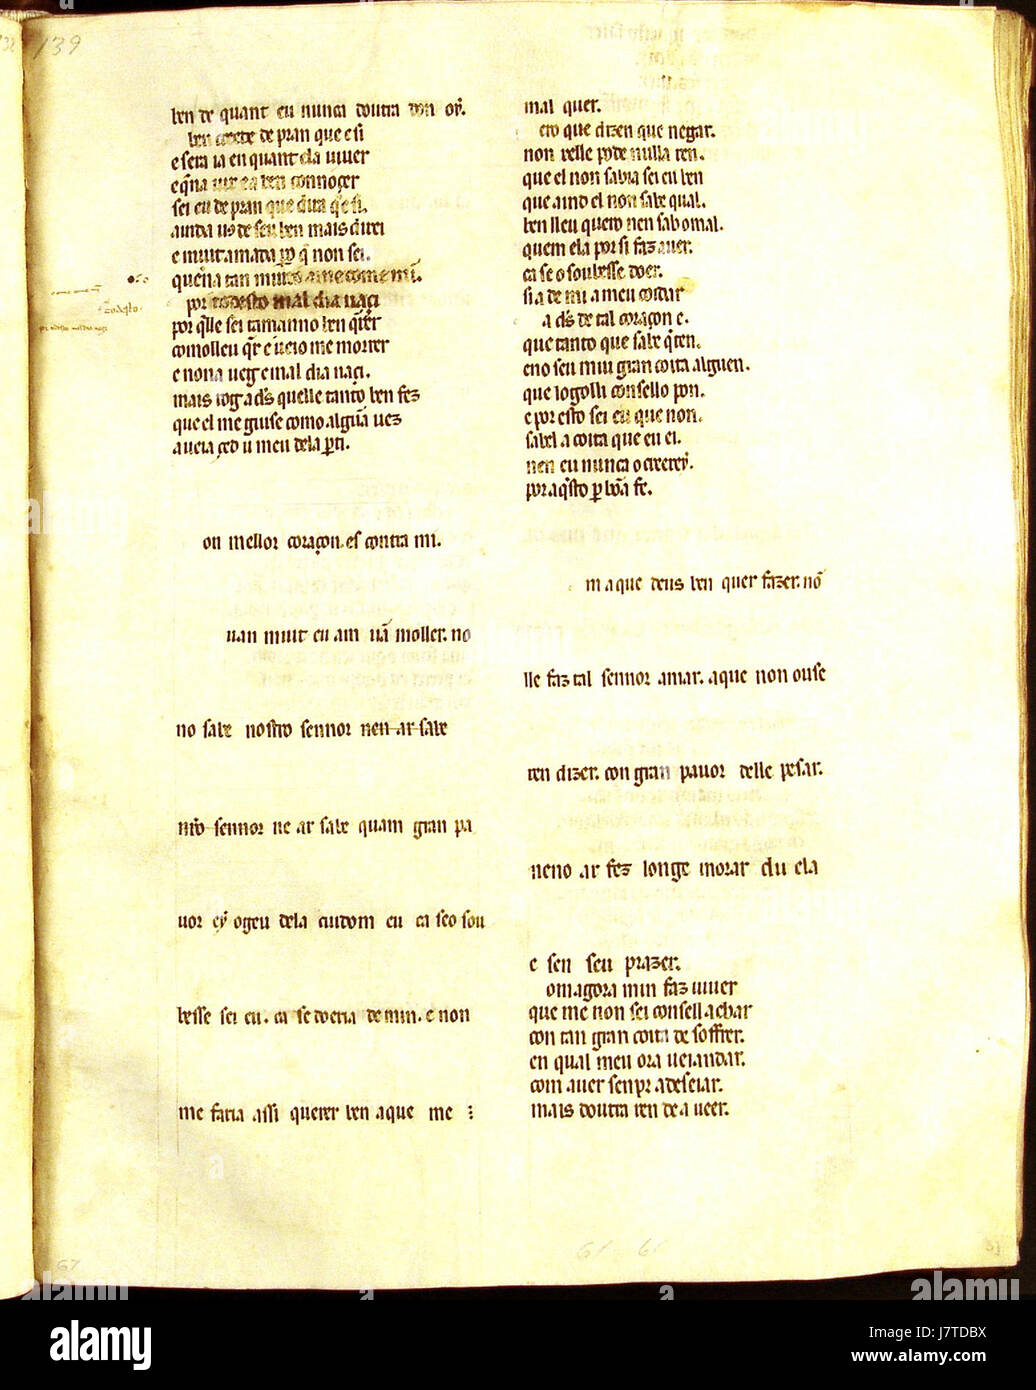 139
ben de quant eu nunca doutra don oỹ.
ben de pran que e si
e sera ia en quant ela uiuer
e q̃na uir ben connocer
sei eu de pran que dira q̃ e si.
ainda uos de seu ben mais direi
e muit amada ꝑo q̃ non sei.
quen a tan muito ame come mĩ.
por to desto mal dia naçi
por q̃lle sei tamanno ben q̃rer
comolleu q̃r e ueio me morrer
e nona ueg e mal dia naçi.
mais rog a ds quelle tanto ben fez
que el me guise como algũa uez
a ueia çed u meu dela ꝑti.
on mellor coraçon. es contra mi.
uan muit eu am uã moller. no
no sabe nostro sennor nen ar sabe
nr̃o sennor ne ar sabe quam gran pa
uor eỹ ogeu dela cuidom eu ca seo sou
besse sei eu. ca se doeria de min. e non
me faria assi querer ben aque me
mal quer.
ero que dizen que negar.
non xelle pode nulla ren.
que el non sabia sei eu ben
que aind el non sabe qual.
ben lleu quero nen sab omal.
quem ela por si faz auer.
ca se o soubesse doer.
sia de mi a meu coidar
a ds de tal coraçon e.
que tanto que sabe q̃ ten.
eno seu mui gran coita alguen.
que logolli consello pon.
e por esto sei eu que non.
sabel a coita que eu ei.
nen eu nunca o creereỹ.
por aq̃sto ꝑ bõa fe.
m aque deus ben quer fazer. nõ
lle faz tal sennor amar. aque non ouse
ren dizer. con gran pauor delle pesar.
neno ar fez longe morar du ela
e sen seu prazer.
om agora min faz uiuer
que me non sei consell achar
con tan gran coita de soffrer.
en qual meu ora ueiandar.
com auer senpr a deseiar.
mais doutra ren de a ueer.
67
alamy
Image ID: J7TDBX
www.alamy.com